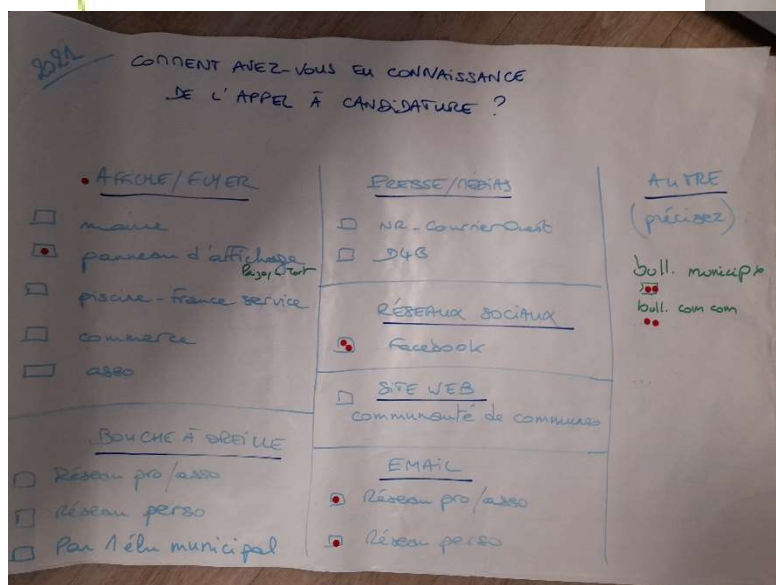 2021
COMMENT AVEZ-VOUS EU CONNAISSANCE
DE L'APPEL À CANDIDATURE ?
AFFICHE/FLYER
mairie
panneau d'affichage
piscine - france service
commerce
asso
BOUCHE À OREILLE
Réseau pro/asso
Réseau perso
Par 1 élu municipal
PRESSE/MÉDIAS
NR - Courrier Ouest
D4B
RÉSEAUX SOCIAUX
Facebook
SITE WEB
communauté de communes
EMAIL
Réseau pro/asso
Réseau perso
AUTRE
(précisez)
bull. municip
bull. com com
...